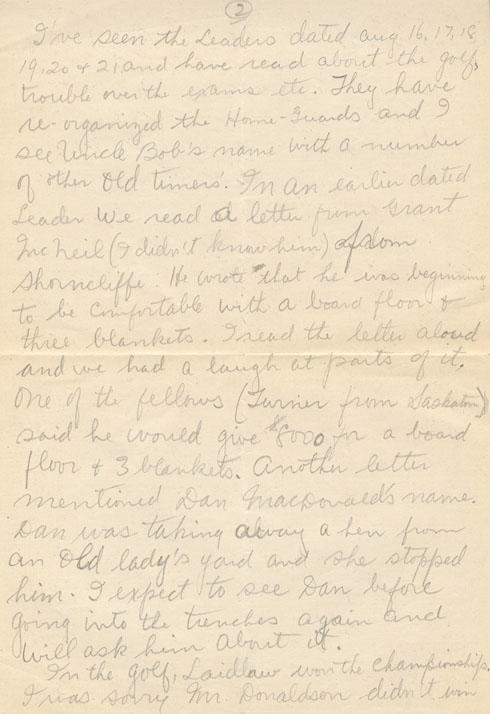 2
I've seen the Leaders dated Aug. 16, 17, 18
19, 20 & 21 and have read about the golf,
trouble over the exams etc. They have
re-organized the Home-Guards and I
see Uncle Bob's name with a number
of other Old timers'. In an earlier dated
Leader we read a letter from Grant
McNeil (I didn't know him) from
Shorncliffe. He wrote that he was beginning
to be comfortable with a board floor &
three blankets. I read the letter aloud
and we had a laugh at parts of it.
One of the fellows (Turner from Saskatoon)
said he would give $8000 for a board
floor & 3 blankets. Another letter
mentioned Dan MacDonald's name.
Dan was taking away a hen from
an Old lady's yard and she stopped
him. I expect to see Dan before
going into the trenches again and
will ask him about it.
In the golf, Laidlaw won the championship.
I was sorry Mr. Donaldson didn't win